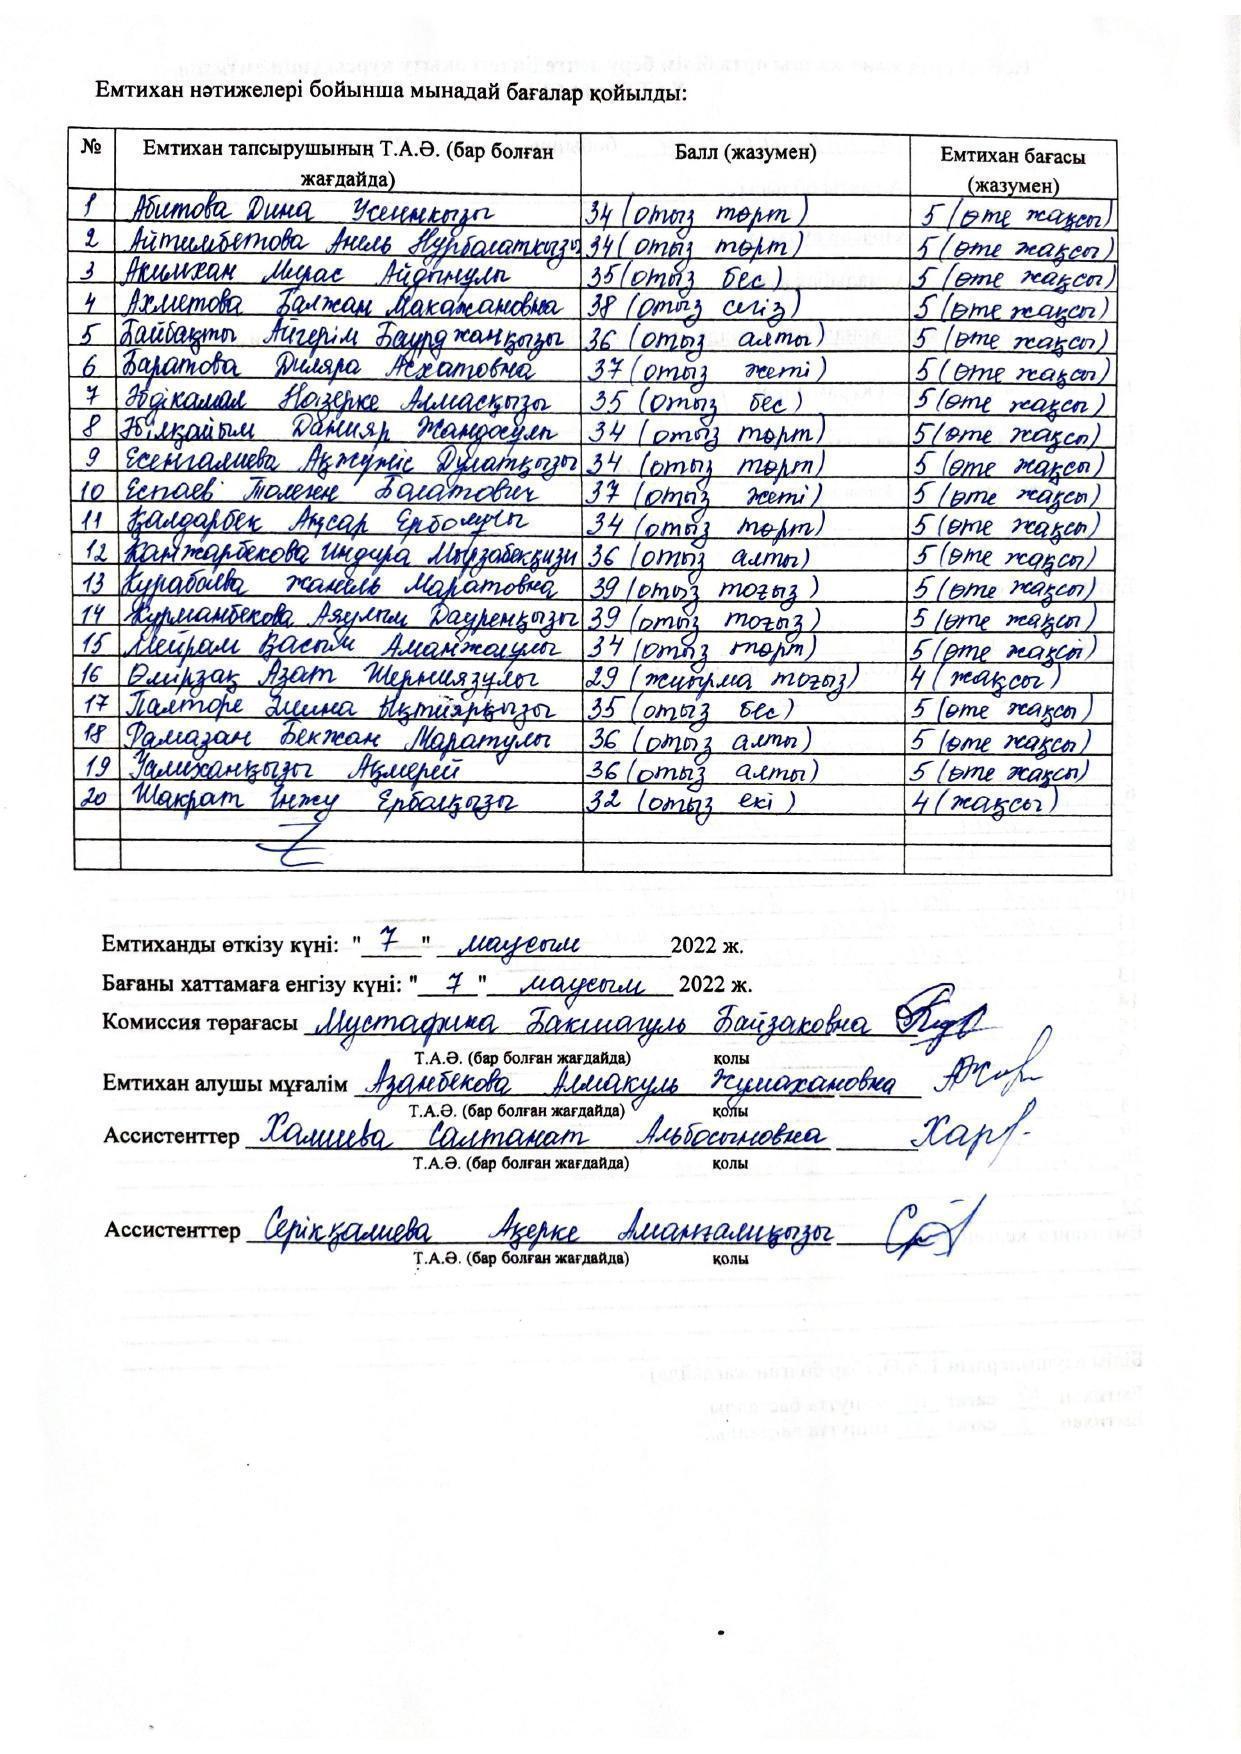 Емтихан нәтижелері бойынша мынадай бағалар қойылды:
№ Емтихан тапсырушының Т.А.Ә. (бар болған жағдайда) Балл (жазумен) Емтихан бағасы (жазумен)
1 Абитова Дина Усенқызы 34 (отыз төрт) 5 (өте жақсы)
2 Айтимбетова Анель Нурболатқызы 34 (отыз төрт) 5 (өте жақсы)
3 Акимхан Мирас Айдынұлы 35 (отыз бес) 5 (өте жақсы)
4 Ахметова Балжан Макажановна 38 (отыз сегіз) 5 (өте жақсы)
5 Байбақты Айгерім Бауржанқызы 36 (отыз алты) 5 (өте жақсы)
6 Баратова Диляра Асхатовна 37 (отыз жеті) 5 (өте жақсы)
7 Әбдікамал Назерке Алмасқызы 35 (отыз бес) 5 (өте жақсы)
8 Әбілқайым Данияр Жандосұлы 34 (отыз төрт) 5 (өте жақсы)
9 Есенгалиева Ақжүніс Дулатқызы 34 (отыз төрт) 5 (өте жақсы)
10 Еспаев Толеген Болатович 37 (отыз жеті) 5 (өте жақсы)
11 Қалдарбек Аңсар Ерболұлы 34 (отыз төрт) 5 (өте жақсы)
12 Канжарбекова Индира Мырзабекқизи 36 (отыз алты) 5 (өте жақсы)
13 Курабаева Жанель Маратовна 39 (отыз тоғыз) 5 (өте жақсы)
14 Курманбекова Аяулым Дауренқызы 39 (отыз тоғыз) 5 (өте жақсы)
15 Мейрам Қасым Аманжолұлы 34 (отыз төрт) 5 (өте жақсі)
16 Өмірзақ Азат Шерниязұлы 29 (жиырма тоғыз) 4 (жақсы)
17 Палторе Элина Ықтиярқызы 35 (отыз бес) 5 (өте жақсы)
18 Рамазан Бекжан Маратұлы 36 (отыз алты) 5 (өте жақсы)
19 Уалиханқызы Ақмерей 36 (отыз алты) 5 (өте жақсы)
20 Шакрат Інжу Ерболқызы 32 (отыз екі) 4 (жақсы)
Емтиханды өткізу күні: "7" маусым 2022 ж.
Бағаны хаттамаға енгізу күні: "7" маусым 2022 ж.
Комиссия төрағасы Мустафина Бакшагуль Байзаковна
Т.А.Ә. (бар болған жағдайда) қолы
Емтихан алушы мұғалім Азанбекова Алмакуль Жумахановна
Т.А.Ә. (бар болған жағдайда) қолы
Ассистенттер Халиева Салтанат Альбосыновна
Т.А.Ә. (бар болған жағдайда) қолы
Ассистенттер Серікқалиева Ақерке Аманғалиқызы
Т.А.Ә. (бар болған жағдайда) қолы